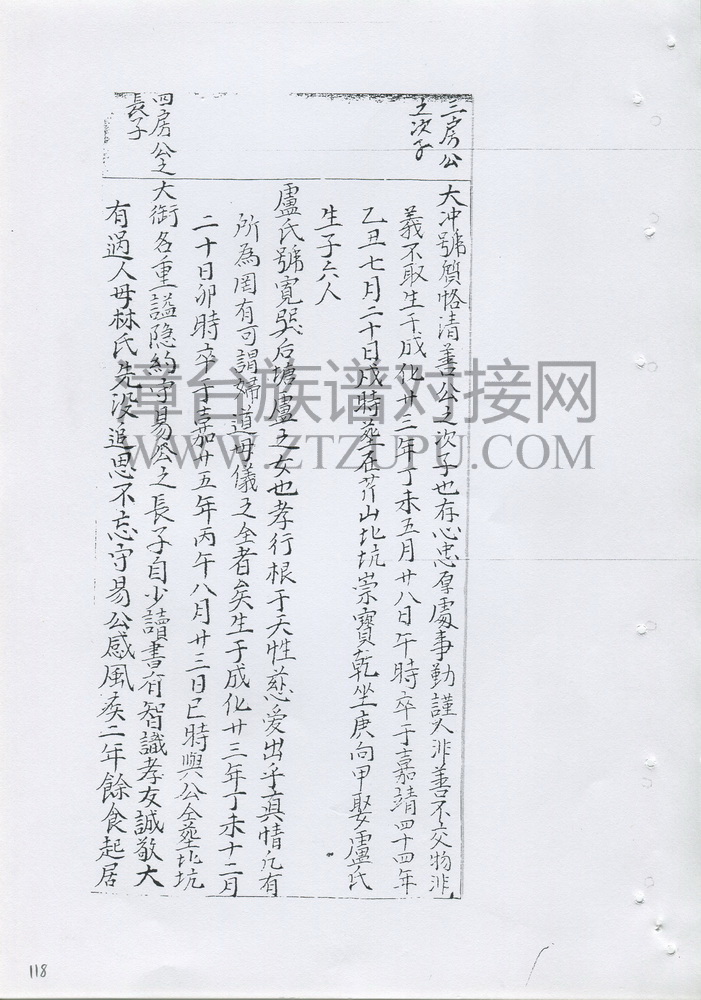 三房公
之次子
大冲號質恪清善公之次子也存心忠厚處事勤謹人非善不交物非
義不取生于成化廿三年丁未五月廿八日午時卒于嘉靖四十四年
乙丑七月二十日戌時葬在芹山北坑崇寶乾坐庚向甲娶盧氏
生子六人
盧氏號寛 后塘盧之女也孝行根于天性慈愛出乎真情凡有
所為罔有可謂婦道母儀之全者矣生于成化廿三年丁未十二月
二十日卯時卒于嘉廿五年丙午八月廿三日巳時與公仝葬北坑
四房公之
長子
大衘名重謚隐約守易公之長子自少讀書有智識孝友誠敬大
有過人母林氏先没追思不忘守易公感風疾二年餘食起居
漳台族谱对接网
WWW.ZTZUPU.COM
118